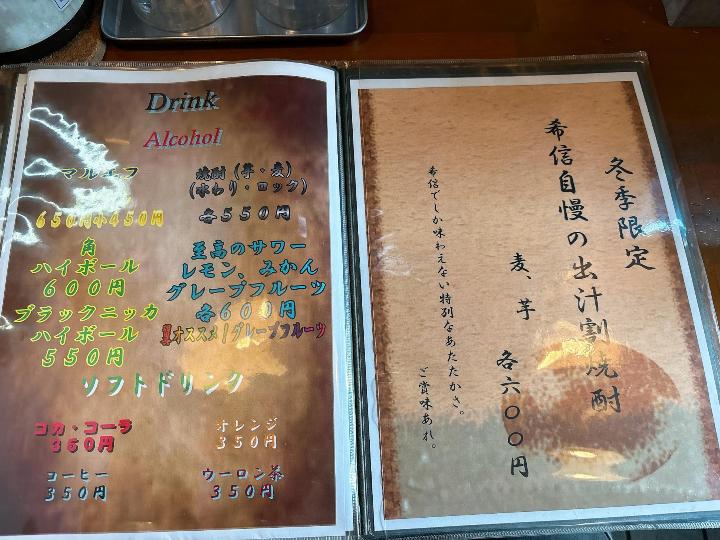 Drink
Alcohol
マルエフ
650円小450円
焼酎(芋・麦)
(水わり・ロック)
各550円
角
ハイボール
600円
ブラックニッカ
ハイボール
550円
至高のサワー
レモン、みかん
グレープフルーツ
各600円
オススメ!グレープフルーツ
ソフトドリンク
コカ・コーラ
350円
オレンジ
350円
コーヒー
350円
ウーロン茶
350円
冬季限定
希信自慢の出汁割焼酎
麦、芋 各六〇〇円
希信でしか味わえない特別なあたたかさ。
ご賞味あれ。